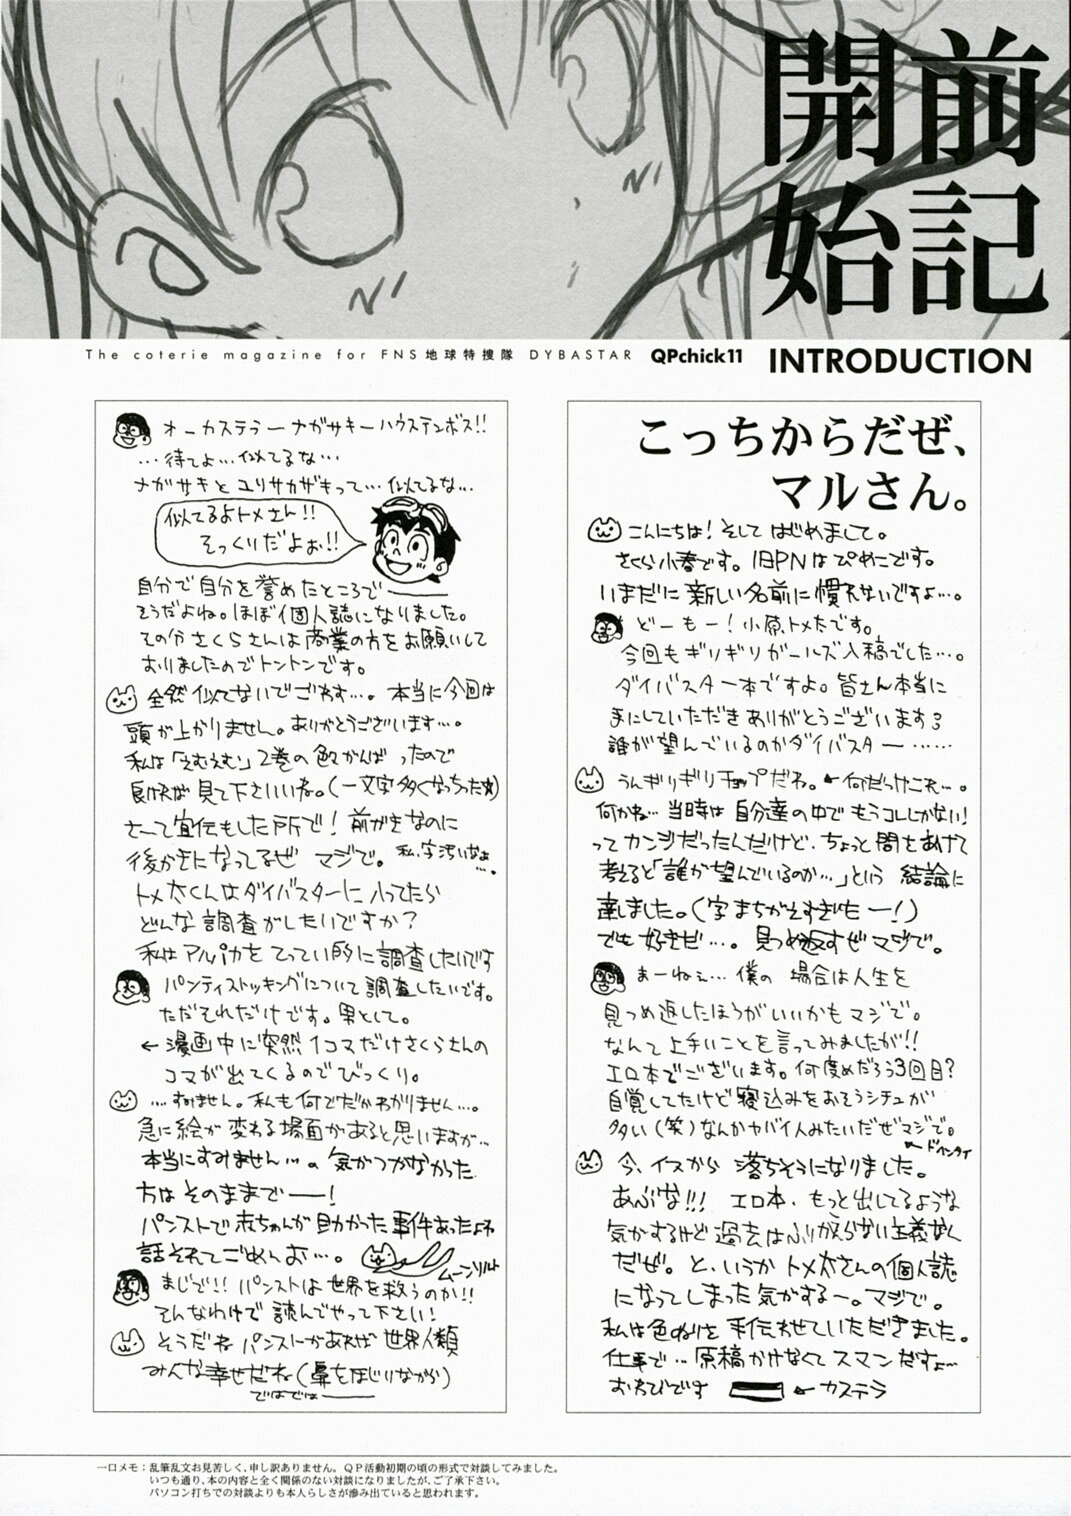 開前
始記
The coterie magazine for FNS地球特捜隊 DYBASTAR QPchick11 INTRODUCTION
こっちからだぜ、
マルさん。
こんにちは!そして はじめまして。
さくら小春です。旧PNはぴめこです。
いまだに新しい名前に慣れないですよ…。
どーもー!小原トメ太です。
今回もギリギリガールズ入稿でした…。
ダイバスター本ですよ。皆さん本当に
手にしていただきありがとうございます
誰が望んでいるのかダイバスター……
うんギリギリチョップだわ。←何だっけこれ…。
何かね…当時は自分達の中でもうコレしかない!
ってカンジだったんだけど、ちょっと間をあけて
考えると「誰が望んでいるのか…」という 結論に
達しました。(字まちがえすぎたー!)
でも好きだ…。見つめ返すぜマジで。
まーねぇ…僕の 場合は人生を
見つめ返したほうがいいかもマジで。
なんて上手いことを言ってみましたが!!
エロ本でございます。何度めだろう3回目?
自覚してたけど寝込みをおそうシチュが
多い(笑)なんかヤバイ人みたいだぜマジで。
←ドヘンタイ
今、イスから 落ちそうになりました。
あぶな!!! エロ本、もっと出してるような
気がするけど過去はふりかえらない主義なん
だぜ。と、いうかトメ太さんの個人誌
になってしまった気がするー。マジで。
私は色ぬりを手伝わせていただきました。
仕事で…原稿かけなくてスマンだすよ〜
おわびです ←カステラ
オーカステラーナガサキーハウステンボス!!
…待てよ…似てるな…
ナガサキとユリサカザキって…似てるな…
似てるよトメさん!!
そっくりだよぉ!!
自分で自分を誉めたところで――
そうだよね。ほぼ個人誌になりました。
その分さくらさんは商業の方をお願いして
おりましたのでトントンです。
全然似てないでごわす…。本当に今回は
頭が上がりません。ありがとうございます…。
私は「えむえむ」2巻の色々がんばったので
良ければ見て下さいいね。(一文字多くなっちった)
さーて宣伝もした所で!前がきなのに
後がきになってるぜ マジで。私、字汚いなぁ…。
トメ太くんはダイバスターに入ってたら
どんな調査がしたいですか?
私はアルパカをてってい的に調査したいです
パンティストッキングについて調査したいです。
ただそれだけです。男として。
←漫画中に突然1コマだけさくらさんの
コマが出てくるのでびっくり。
…すいません。私も何でだかわかりません…。
急に絵が変わる場面があると思いますが…
本当にすみません…。気がつかなかった
方はそのままで――!
パンストで赤ちゃんが助かった事件あったよね
話それてごめんお…。 ムーンソルト
まじで!!パンストは世界を救うのか!!
そんなわけで読んでやって下さい!
そうだねパンストがあれば世界人類
みんな幸せだね(鼻をほじりながら)
ではでは――
一口メモ:乱筆乱文お見苦しく、申し訳ありません。QP活動初期の頃の形式で対談してみました。
いつも通り、本の内容と全く関係のない対談になりましたが、ご了承下さい。
パソコン打ちでの対談よりも本人らしさが滲み出ていると思われます。